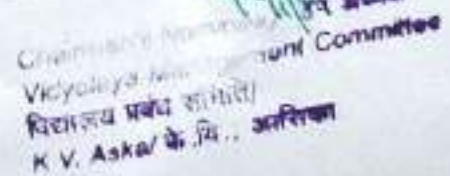 Chairman Nominee/ उप अध्यक्ष
Vidyalaya Management Committee
विद्यालय प्रबंध समिति/
K V. Aska/ के.वि., आसिका